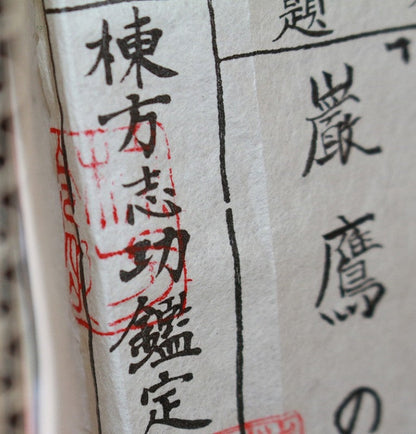 題
巖鷹の
棟方志功鑑定